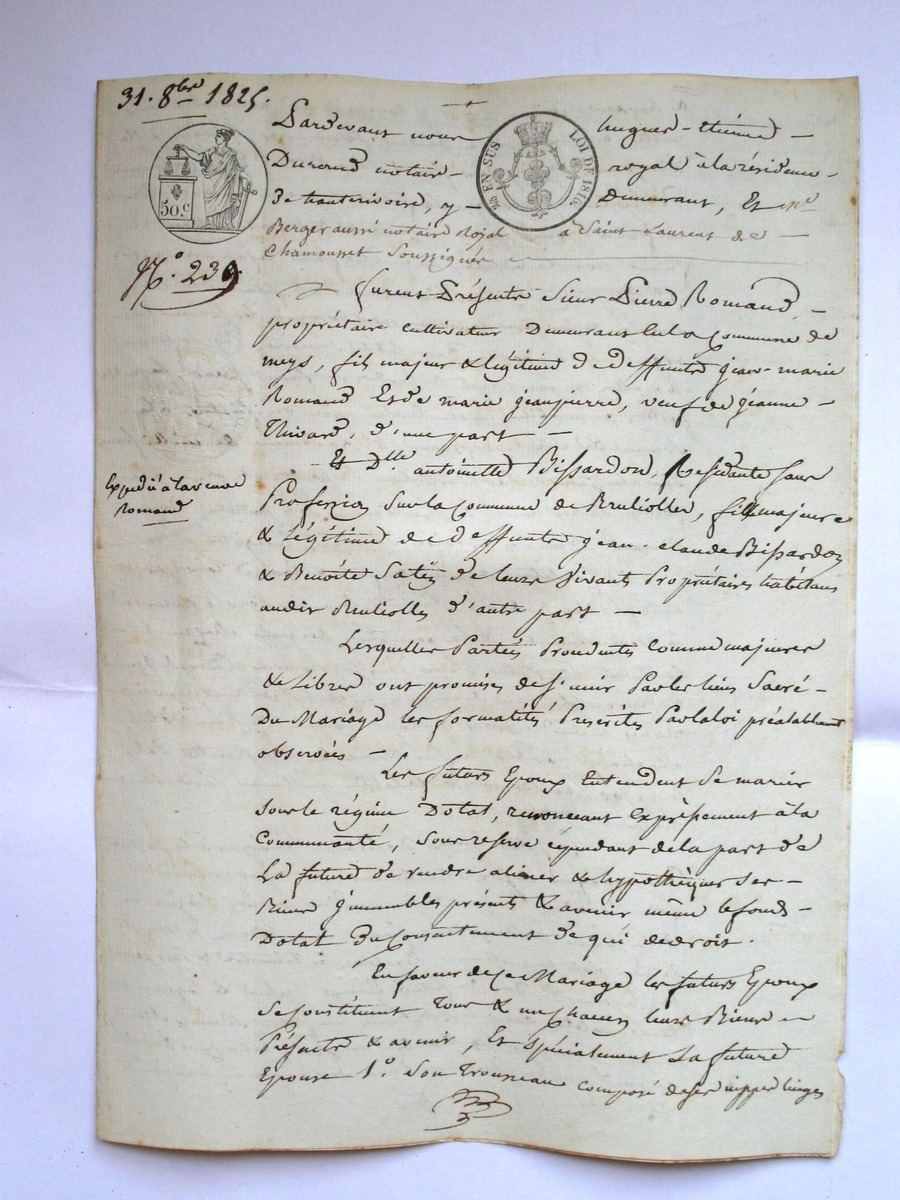 31. 8bre 1825.
Pardevant nous hugues-étiénne
Durand notaire royal à la résidence
de hauterivoire, y demeurant, Et Me
Berger aussi notaire Royal a Saint Laurent de
Chamousset Soussignés
50.c
25 EN SUS LOI DE 1816.
N.o 239.
furent Présents Sieur Pierre Romand,
propriétaire cultivateur Demeurant Sur la Commune de
meys, fils majeur & légitime de deffunts jean-marie
Romand Et de marie jeanpierre, veuf de jeanne
Thivard, d'une part
Et Dlle antoinette Bissardon, Residante sans
Profession Sur la Commune de Brulioles, fille majeure
& légitime de deffunts jean-claude Bissardon
& Benoite de leurs Vivants Propriétaires habitans
audit Brulioles d'autre part
Expédié à la veuve
Romand
Lesquelles Parties Procedantes Comme majeures
& Libres ont promises de s'unir Par les liens Sacré
Du Mariage les formalités Prescrites Par la loi préalablement
observées
Les futurs Epoux Entendent Se marier
sous le régime Dotal, renonceant Expressement à la
Communauté, sous reserve cependant de la part de
La future de vendre aliener & hypothèquer Ses
Biens jmmeubles présents & avenir même le fonds
Dotal du Consentement de qui de droit.
En faveur de Ce Mariage les futurs Epoux
Se constituent Tous & un Chacun leurs Biens
Présents & avenir, Et spécialement La future
Epouse 1.o Son Trousseau composé de ses nippes linges